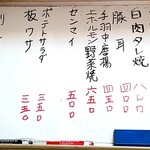 白肉タレ焼
豚耳 四五〇
手羽中唐揚 四五〇
上ホルモン野菜焼 六五〇
センマイ 五〇〇
ポテトサラダ 三五〇
板ワサ 三五〇